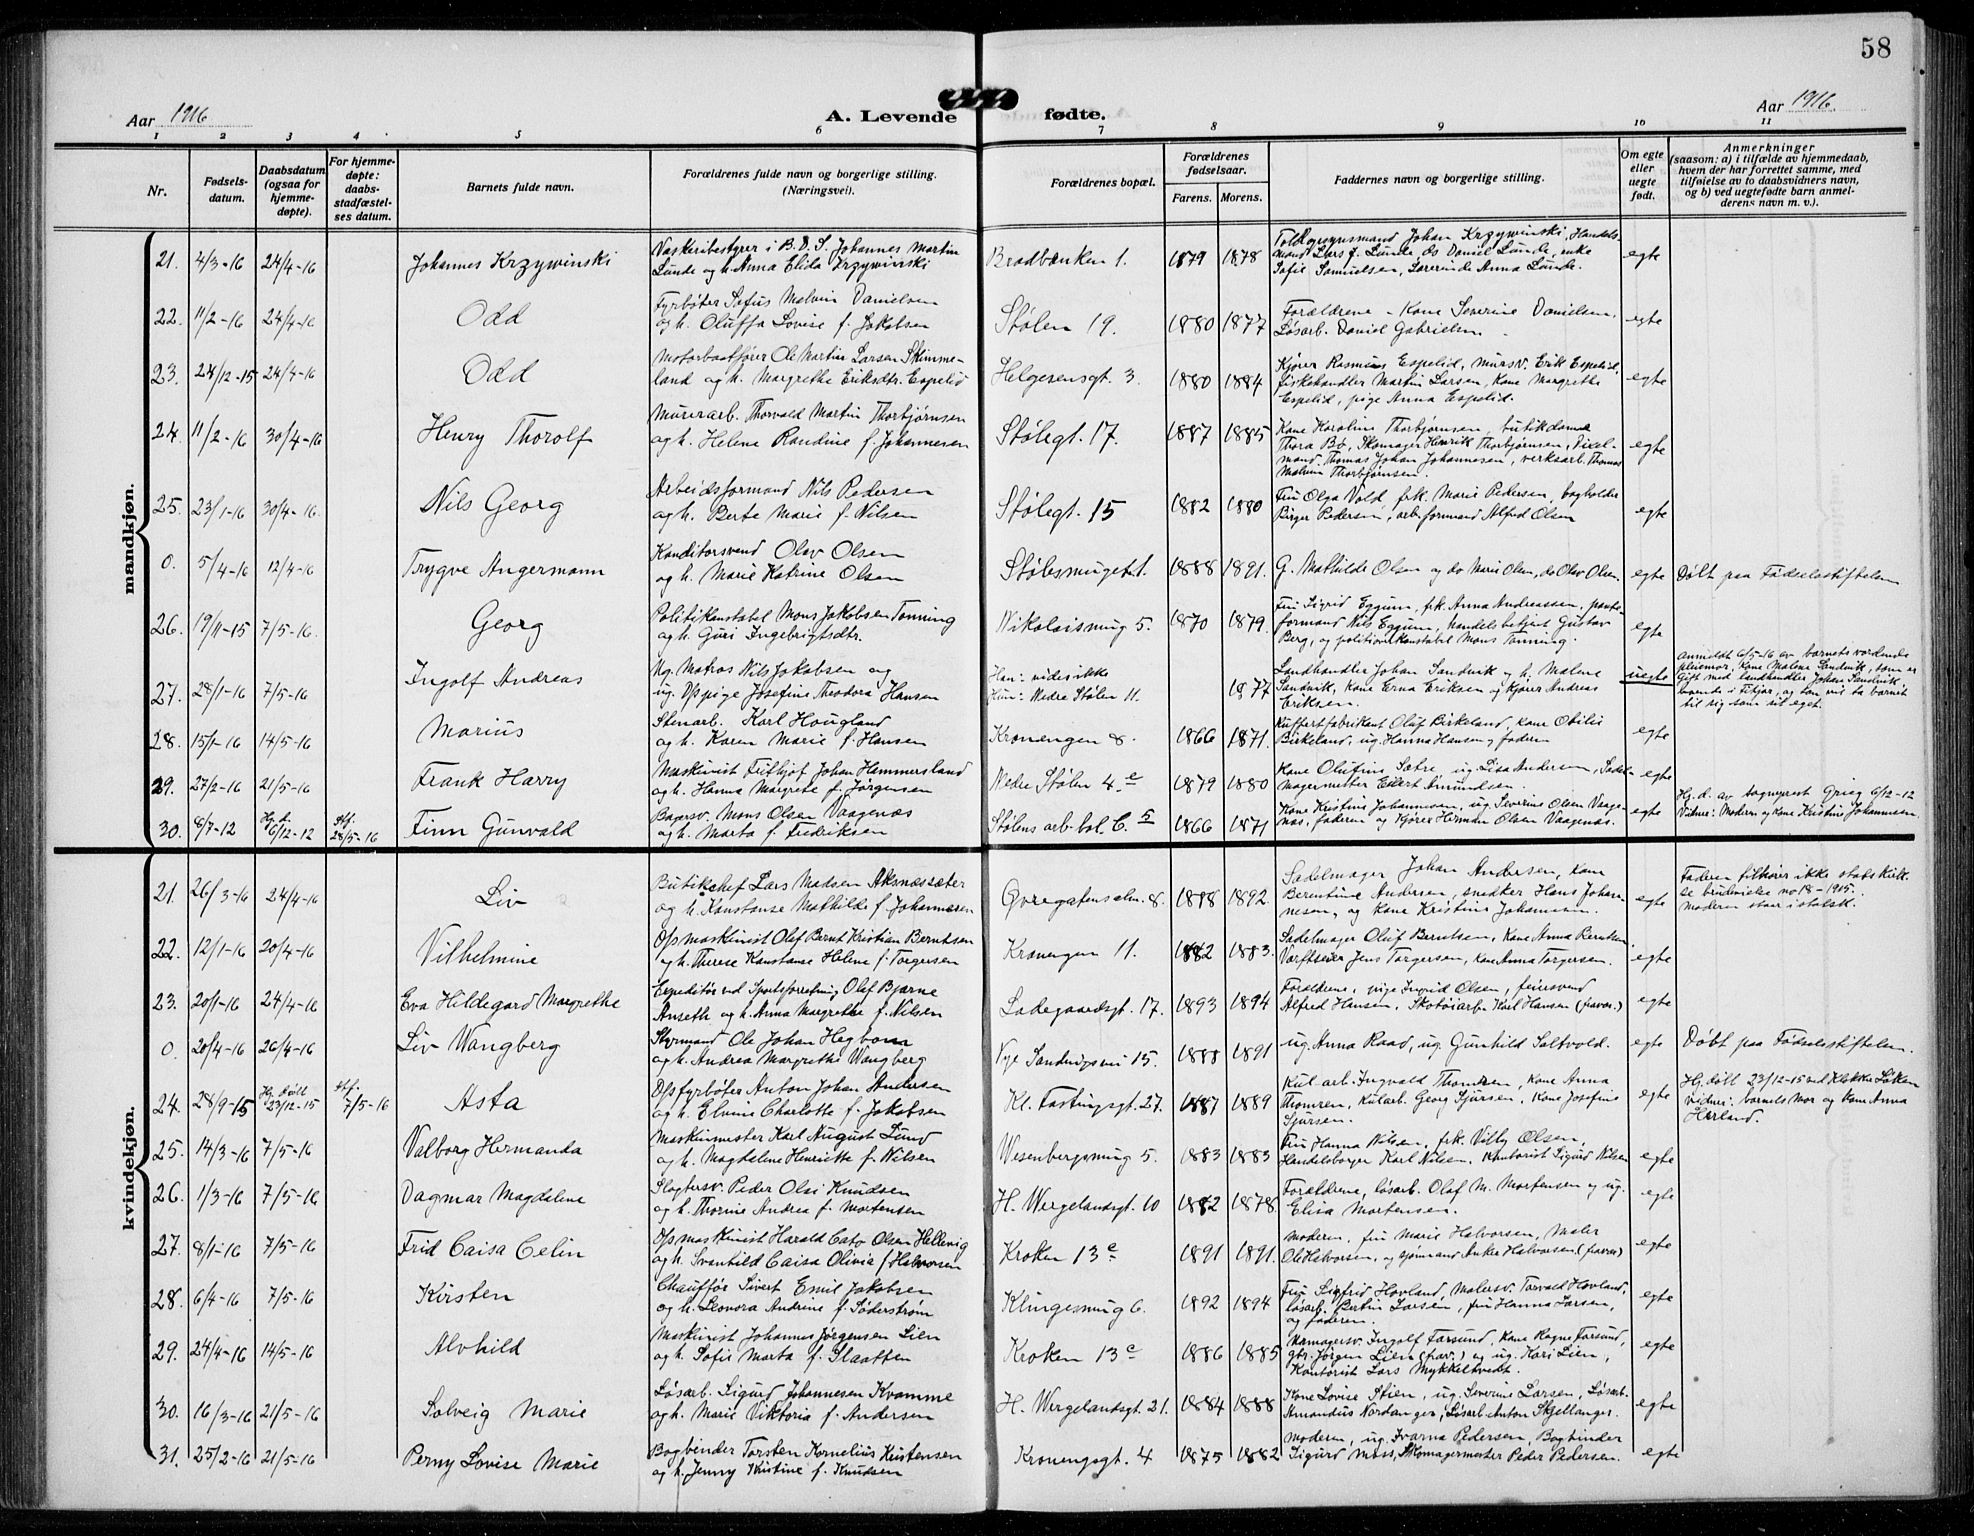 58
Aar 1916
A. Levende fødte.
Aar 1916.
1 2 3 4 5 6 7 8 9 10 11
Nr.
Fødsels-
datum.
Daabsdatum
(ogsaa for
hjemme-
døpte).
For hjemme-
døpte:
daabs-
stadfæstel-
ses datum.
Barnets fulde navn.
Forældrenes fulde navn og borgerlige stilling.
(Næringsvei).
Forældrenes bopæl.
Forældrenes
fødselsaar.
Farens. Morens.
Faddernes navn og borgerlige stilling.
Om egte
eller
uegte
født.
Anmerkninger
(saasom: a) i tilfælde av hjemmedaab,
hvem der har forrettet samme, med
tilføielse av to daabsvidners navn,
og b) ved uegtefødte barn anmel-
derens navn m. v.).
mandkjøn.
21. 4/3-16 24/4-16 Johannes Krzywinski
Vaskeribestyrer i B.D.S. Johannes Martin
Lunde og h. Anna Elida Krzywinski
Bradbænken 1. 1879 1878
Johan Krzywinski, Handels-
mand Lars J. Lunde, ds Daniel Lunde, enke
Sofie Samuelsen, Lærerinde Anna Lunde.
egte
22. 11/2-16 24/4-16 Odd
Fyrbøter Sofus Malvin Danielsen
og h. Oluffa Lovise f. Jakobsen
Stølen 19. 1880 1877
Forældrene - Kone Severine Danielsen,
Løsarb. Daniel Gabrielsen.
egte
23. 24/12-15 24/4-16 Odd
Motorbaatfører Ole Martin Larsen Skimme-
land og h. Margrethe Eriksdtr. Espelid
Helgesensgt. 3. 1880 1884
Kjører Rasmus Espelid, mursv. Erik Espelid,
fiskehandler Martin Larsen, Kone Margrethe
Espelid, pige Anna Espelid.
egte
24. 11/2-16 30/4-16 Henry Thorolf
Murerarb. Thorvald Martin Thorbjørnsen
og h. Helene Randine f. Johannesen
Stølegt. 17. 1887 1885
Kone Karoline Thorbjørnsen, butikdame
Thora Bø, Skomager Henrik Thorbjørnsen,
mand Thomas Johan Johannesen, verksarb. Thomas
Malvin Thorbjørnsen.
egte
25. 23/1-16 30/4-16. Nils Georg
Arbeidsformand Nils Pedersen
og h. Berte Marie f. Nilsen
Stølegt. 15 1882 1880
Fru Olga Vold, frk. Marie Pedersen, bogholder
Birger Pedersen, arb.formand Alfred Olsen
egte
0. 5/4-16 12/4-16 Trygve Angermann
Konditorsvend Olav Olsen
og h. Marie Katrine Olsen
Stølesmuget 1. 1888 1891.
G. Mathilde Olsen og do Marie Olsen, do Olav Olsen.
egte
Døbt paa Fødselsstiftelsen
26. 19/11-15 7/5-16. Georg
Politikonstabel Mons Jakobsen Tønning
og h. Guri Ingebrigtsdtr.
Nikolaismug 5. 1870 1879.
Fru Sigrid Eggum, frk. Anna Andreassen,
formand Nils Eggum, handelsbetjent Gustav
Berg, og politikonstabel Mons Tønning.
egte
27. 28/1-16 7/5-16. Ingolf Andreas
Ug. Matros Nils Jakobsen og
ug. Opspige Josefine Theodora Hansen
Han: vides ikke
Hun: Nedre Stølen 11.
1877
Landhandler Johan Sandvik og h. Malene
Sandvik, Kone Erna Eriksen og Kjører Andreas
Eriksen.
uegte
Anmeldt 6/5-16 av barnets vordende
pleiemor, Kone Malene Sandvik, som er
gift med Landhandler Johan Sandvik,
boende i Fitjar, og som vil ta barnet
til sig som sit eget.
28. 15/1-16 14/5-16 Marius
Stenarb. Karl Hougland
og h. Karen Marie f. Hansen
Kronengen 8. 1866 1871.
Kuffertfabrikant Oluf Birkeland, Kone Otilie
Birkeland, ug. Hanna Hansen og faderen
egte
29. 27/2-16 21/5-16 Frank Harry
Maskinist Frithjof Johan Hammersland
og h. Hanna Margrete f. Jørgensen
Nedre Stølen 4 c 1879 1880
Kone Olufine Sætre, ug. Lisa Andersen, Sadel-
magermester Eilert Amundsen.
egte
30. 8/7-12 Hj.d. 6/12-12 Stf. 28/5-16 Finn Gunvald
Bagersv. Mons Olsen Vaagenæs
og h. Marta f. Fredriksen
Stølens arb.bol. C. 5 1866 1871
Kone Kristine Johannesen, ug. Severine Olsen Vaage-
næs, faderen og Kjører Herman Olsen Vaagenæs.
egte
Hj.d. av sogneprest Grieg 6/12-12
Vidner: Moderen og Kone Kristine Johannesen.
kvindekjøn.
21. 26/3-16 24/4-16 Liv
Butikchef Lars Madsen Aksnæssæter
og h. Konstanse Mathilde f. Johannesen
Øvregatensalm. 8. 1888 1892.
Sadelmager Johan Andersen, Kone
Berentine Andersen, snedker Hans Johan-
nesen, og Kone Kristine Johannesen.
egte
Faderen tilhører ikke statskirk.
se brudevielse no 18-1915.
Moderen staar i statsk.
22. 12/1-16 20/4-16 Vilhelmine
Opsmaskinist Olaf Bernt Kristian Berntsen
og h. Therese Konstanse Helene f. Torgersen
Kronengen 11. 1882 1883.
Sadelmager Oluf Berntsen, Kone Anna Berntsen,
Værftseier Jens Torgersen, Kone Anna Torgersen.
egte
23. 20/1-16 24/4-16 Eva Hildegard Margrethe
Expeditør ved Sportsforretning Olaf Bjarne
Anseth og h. Anna Margrethe f. Nilsen
Ladegaardsgt. 17. 1893 1894
Forældrene, pige Ingrid Olsen, feiersvend
Alfred Hansen, Skotøiarb. Karl Hansen (fravær.)
egte
0. 20/4-16 26/4-16 Liv Wangberg
Styrmand Ole Johan Hegbom
og h. Andrea Margrethe Wangberg
Nye Sandvigsvei 15. 1888 1891
ug. Anna Raad, ug. Gunhild Saltvold.
egte
Døbt paa Fødselsstiftelsen.
24. 28/9-15 Hj. døbt 23/12-15 Stf. 7/5-16 Asta
Opsfyrbøter Anton Johan Andersen
og h. Elvine Charlotte f. Jakobsen
Kl. Fastingsgt. 27. 1887 1889
Kul.arb. Ingvald Thomsen, Kone Anna
Thomsen, Kularb. Georg Sjursen, Kone Josefine
Sjursen.
egte
Hj. døbt 23/12-15 ved Klokker Løken
Vidner: barnets Mor og Kone Anna
Herland.
25. 14/3-16 7/5-16 Valborg Hermanda
Maskinmester Karl August Lund
og h. Magdalene Henriette f. Nilsen
Wesenbergsmug 5. 1883 1883
Fru Hanna Nilsen, frk. Villy Olsen,
Handelsborger Karl Nilsen, Kontorist Sigurd Nilsen
egte
26. 1/3-16 7/5-16 Dagmar Magdalene
Slagtersv. Peder Olai Knudsen
og h. Thorine Andrea f. Mortensen
H. Wergelandsgt. 10 1882 1878.
Forældrene, løsarb. Olaf M. Mortensen og ug.
Elisa Mortensen.
egte
27. 8/1-16 7/5-16 Frid Caisa Celin
Opsmaskinist Harald Cato Olsen Hellevig
og h. Svanhild Caisa Olivia f. Halvorsen
Kroken 13 c 1891 1891.
Moderen, fru Marie Halvorsen, Maler
Ole Halvorsen, og sjømand Anker Halvorsen (fravær.)
egte
28. 6/4-16 7/5-16 Kirsten
Chaufför Sivert Emil Jakobsen
og h. Leonora Andrine f. Söderström
Klingesmug 6. 1892 1894
Fru Sigfrid Hovland, Malersv. Torvald Hovland,
løsarb. Bertin Larsen, fru Hanna Larsen,
og faderen.
egte
29. 24/4-16 14/5-16 Alvhild
Maskinist Johannes Jørgensen Lien
og h. Sofie Marta f. Slaatten
Kroken 13 c 1886 1885
Ingolf Farsund, Kone Ragne Farsund,
gbr. Jørgen Lien (fravær.) og ug. Kari Lien,
Kontorist Lars Mykkeltvedt.
egte
30. 16/3-16 21/5-16 Solveig Marie
Løsarb. Sigurd Johannesen Kvamme
og h. Marie Viktoria f. Andersen
H. Wergelandsgt. 21. 1884 1888
Kone Lovise Stien, ug. Severine Larsen, Løsarb.
Amandus Nordanger, Løsarb. Anton Skjellanger.
egte
31. 25/2-16 21/5-16 Perny Lovise Marie
Bogbinder Torsten Kornelius Kristensen
og h. Jenny Kristine f. Knudsen
Kronengsgt. 4 1875 1882
Moderen, ug. Ivarna Pedersen, Bogbinder
Sigurd Moss, Skomagermester Peder Pedersen.
egte